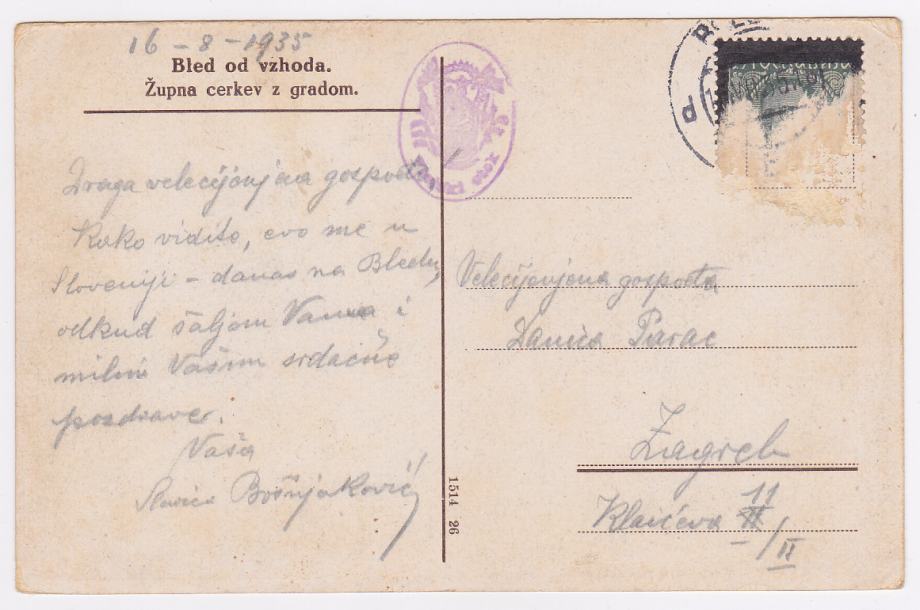 16 - 8 - 1935
Bled od vzhoda.
Župna cerkev z gradom.
Draga velecijenjena gospođo
Kako vidite, evo me u
Sloveniji - danas na Bledu,
odkud šaljem Vama i
milim Vašim srdačne
pozdrave.
Vaša
Slavica Bošnjaković
1514 26
Velecijenjena gospođa
Danica Parac
Zagreb
Klaićeva 11/II